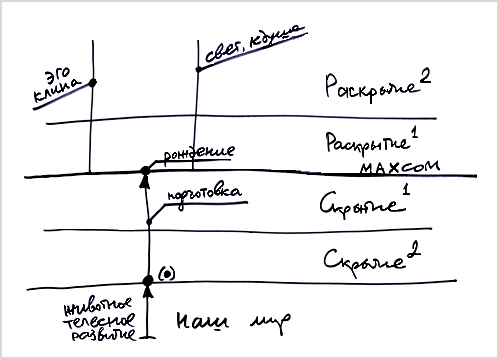 эго
клипа
свет, кдуша
Раскрытие²
Раскрытие¹
рождение
МАХСОМ
подготовка
Скрытие¹
Скрытие²
(•)
животное
телесное
развитие
Наш мир